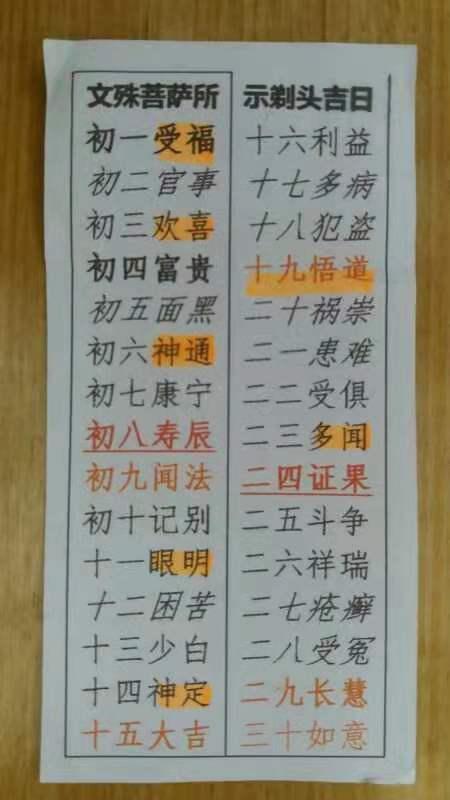 文殊菩萨所示剃头吉日
初一受福
初二官事
初三欢喜
初四富贵
初五面黑
初六神通
初七康宁
初八寿辰
初九闻法
初十记别
十一眼明
十二困苦
十三少白
十四神定
十五大吉
十六利益
十七多病
十八犯盗
十九悟道
二十祸崇
二一患难
二二受俱
二三多闻
二四证果
二五斗争
二六祥瑞
二七疮癣
二八受冤
二九长慧
三十如意